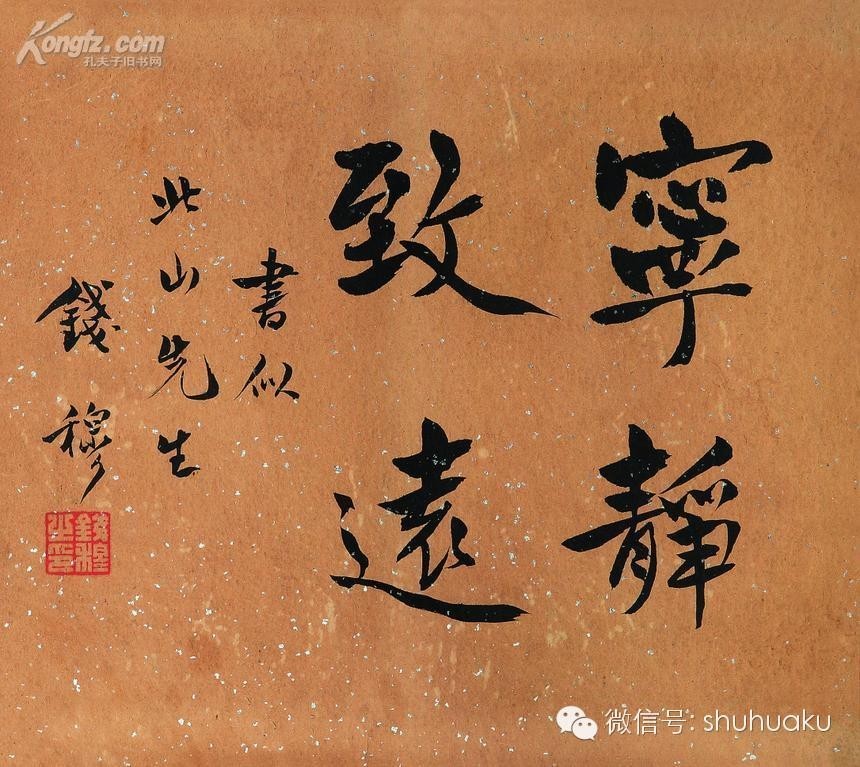 Kongfz.com
孔夫子旧书网
寧靜
致遠
書似
此山先生
錢穆
錢穆之印
微信号: shuhuaku